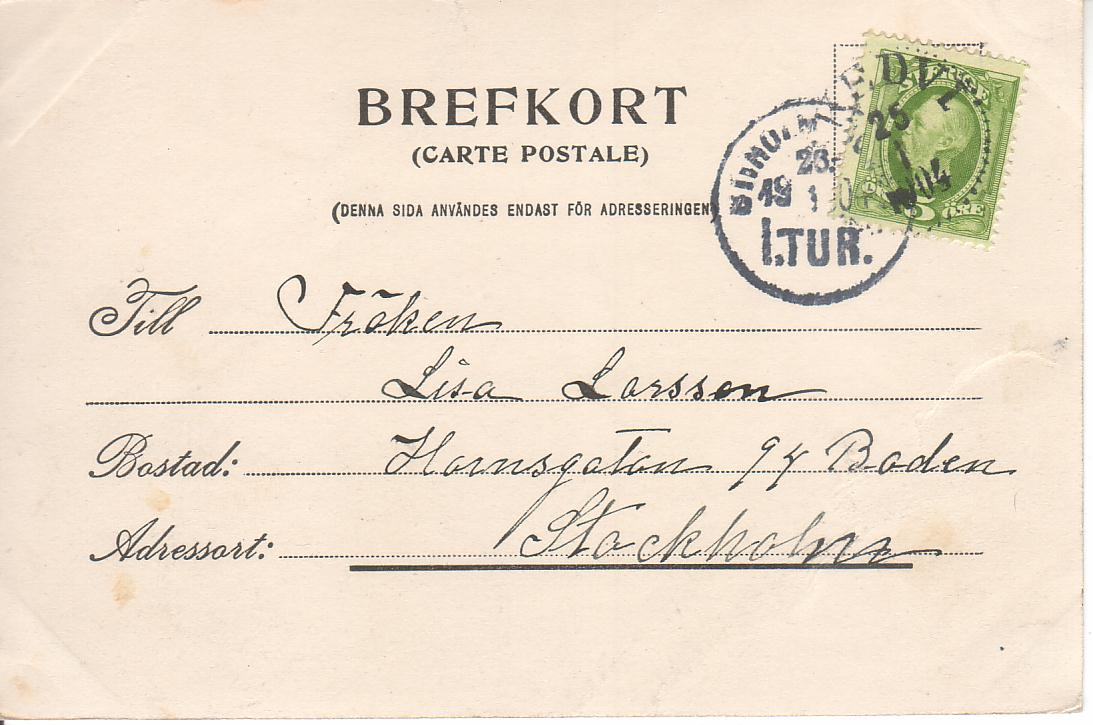 BREFKORT
(CARTE POSTALE)
(DENNA SIDA ANVÄNDES ENDAST FÖR ADRESSERINGEN)
25
1
1904
26.
19 1 04
1.TUR.
5 ÖRE
Till Fröken
Lisa Larsson
Bostad: Hornsgatan 94 Boden
Adressort: Stockholm